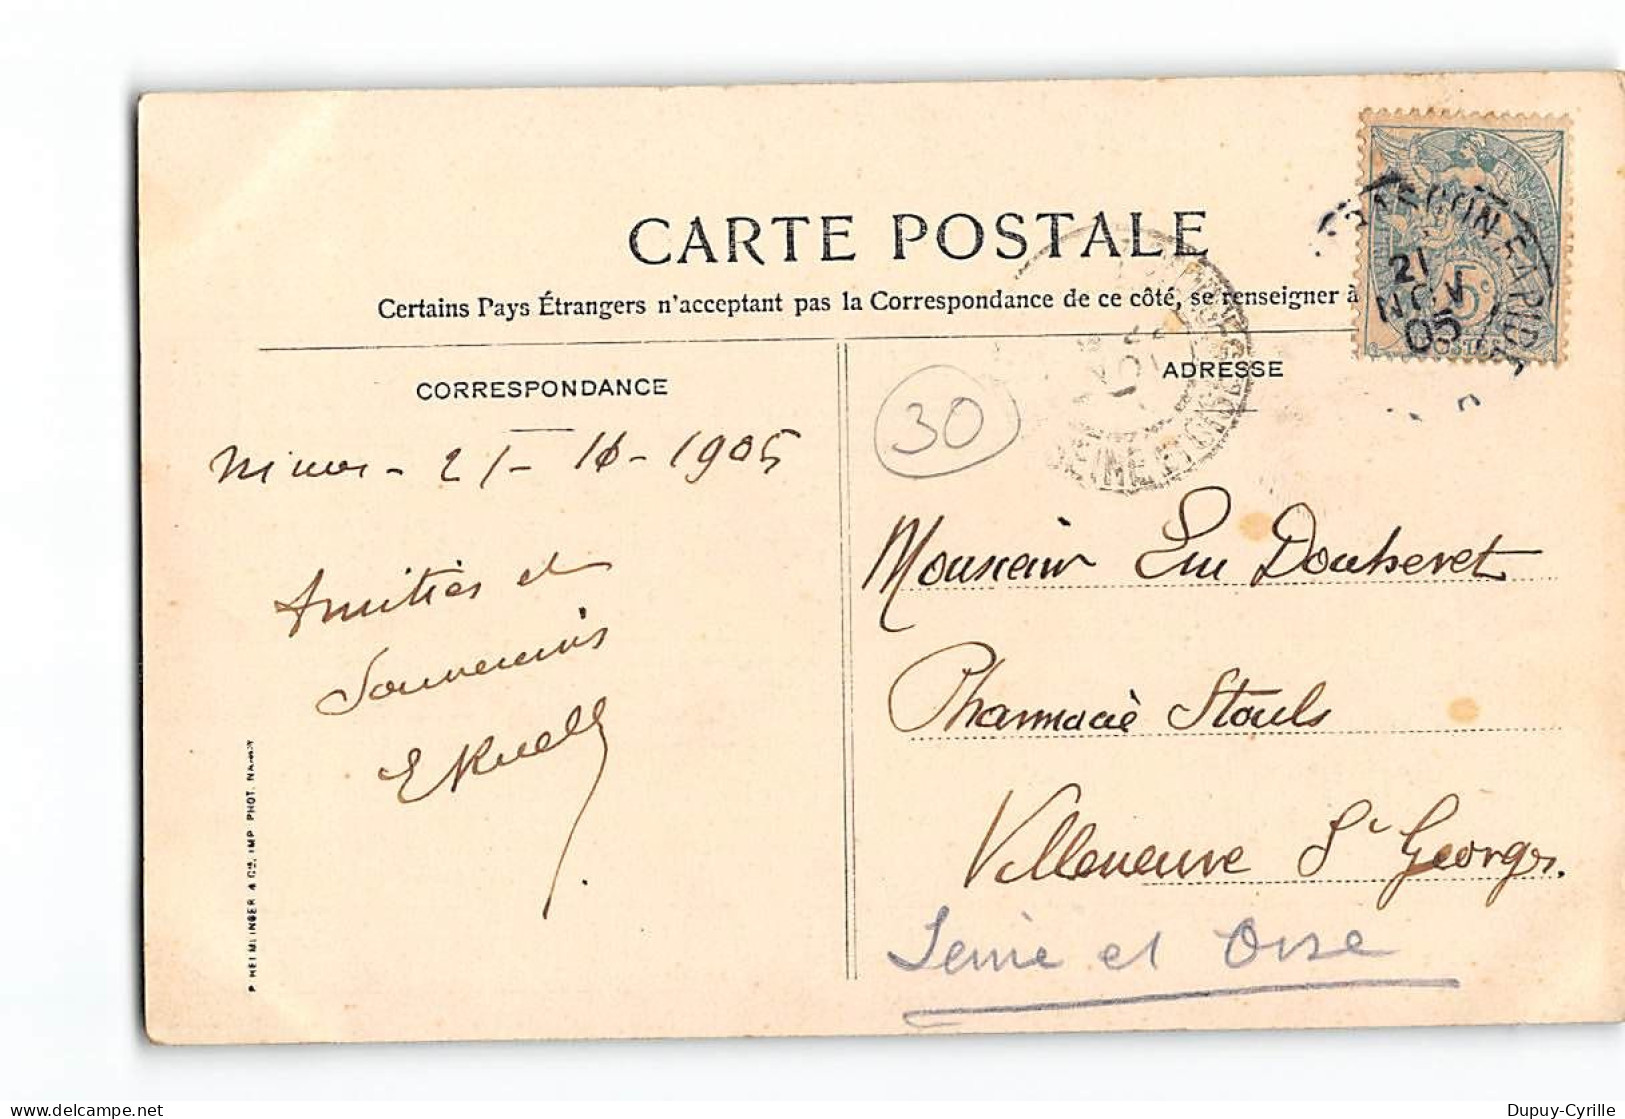 CARTE POSTALE
Certains Pays Étrangers n'acceptant pas la Correspondance de ce côté, se renseigner à
CORRESPONDANCE
ADRESSE
30
21 - 1905
Amitiés et
Souvenirs
Monsieur Luc
Pharmacie
Villeneuve St Georges.
Seine et Oise
21
NOV
05
5c
POSTES
SEINE ET OISE
P. HELMLINGER & Cie, IMP. PHOT. NANCY
Dupuy-Cyrille